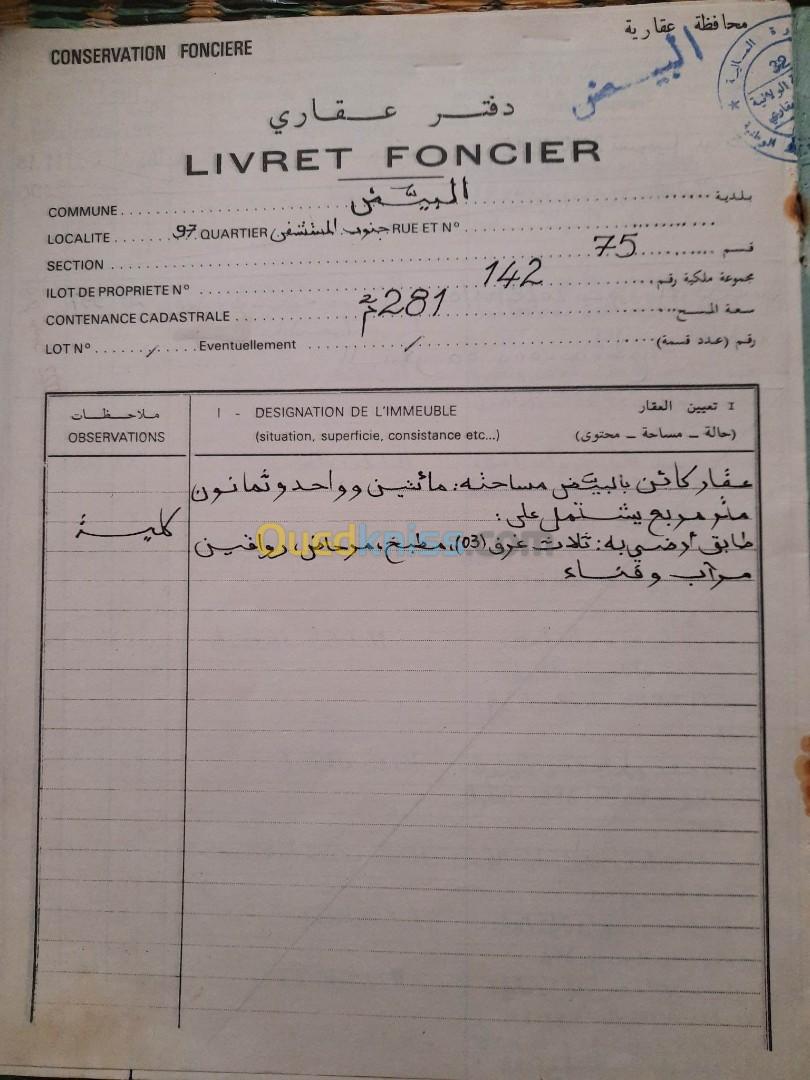 محافظة عقارية
CONSERVATION FONCIERE
البيــض
32
دفتــر عــقــاري
LIVRET FONCIER
COMMUNE البيّض بلدية
LOCALITE 97 QUARTIER جنوب المستشفى RUE ET Nº
SECTION 75 قسم
ILOT DE PROPRIETE Nº 142 مجموعة ملكية رقم
CONTENANCE CADASTRALE 281 م2 سعة المسح
LOT Nº / Eventuellement / رقم (عدد قسمة)
ملاحظات I - DESIGNATION DE L'IMMEUBLE I تعيين العقار
OBSERVATIONS (situation, superficie, consistance etc...) (حالة ـ مساحة ـ محتوى)
عقار كائن بالبيّض مساحته: مائتين وواحد وثمانون
متر مربع يشتمل على:
كلية
طابق أرضي به: ثلاث غرف (03)، مطبخ، مرحاض، رواقين
مرآب وفناء
Ouedkniss.com